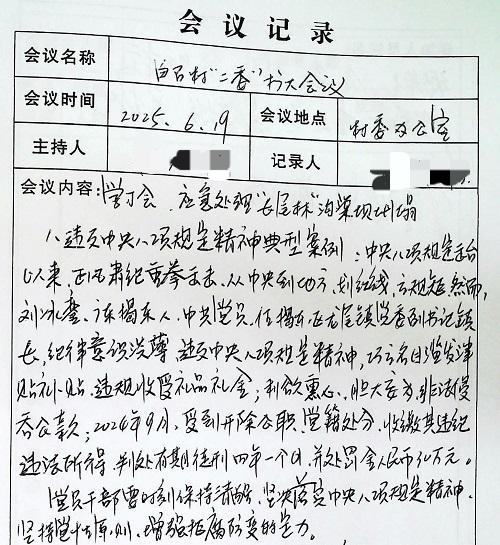 会议记录
会议名称 白石村"二委"扩大会议
会议时间 2025.6.19 会议地点 村委办公室
主持人 记录人
会议内容: 学习会、应急处理"长尾林"沟渠坝坍塌
八违反中央八项规定精神典型案例:中央八项规定出台
以来,正风肃纪重拳出击,从中央到地方,划红线,立规矩,然而,
刘冰奎、广东揭东人、中共党员,任揭东区龙尾镇党委副书记镇
长,纪律意识淡薄,违反中央八项规定精神,巧立名目滥发津
贴补贴,违规收受礼品礼金;利欲熏心,胆大妄为,非法侵
吞公款;2024年9月,受到开除公职、党籍处分,收缴其违纪
违法所得,判处有期徒刑四年一个月,并处罚金人民币 万元。
党员干部要时刻保持清醒,坚决落实中央八项规定精神,
坚持党性原则,增强拒腐防变的能力。